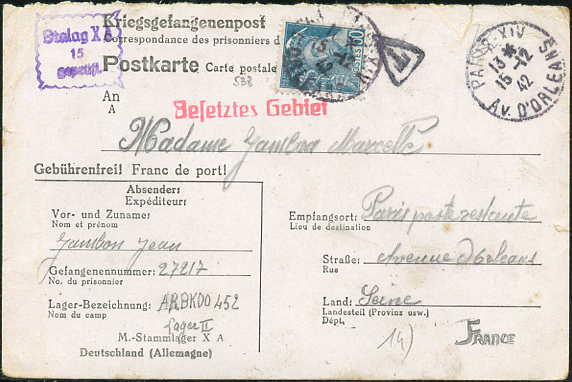 Kriegsgefangenenpost
Correspondance des prisonniers d
Postkarte Carte postale
Stalag X A
15
geprüft
50
POSTES
T
PARIS XIV
13 *
15 -12
42
AV. D'ORLEANS
538
An
A
Besetztes Gebiet
Madame Jambon Marcelle
Gebührenfrei! Franc de port!
Absender:
Expéditeur:
Vor- und Zuname:
Nom et prénom
Jambon Jean
Gefangenennummer: 27217
No. du prisonnier
Lager-Bezeichnung: ARBKDO 452
Nom du camp
Lager II
M.-Stammlager X A
Deutschland (Allemagne)
Empfangsort: Paris poste restante
Lieu de destination
Straße: Avenue d'Orléans
Rue
Land: Seine
Landesteil (Provinz usw.)
Dépt.
14)
FRANCE